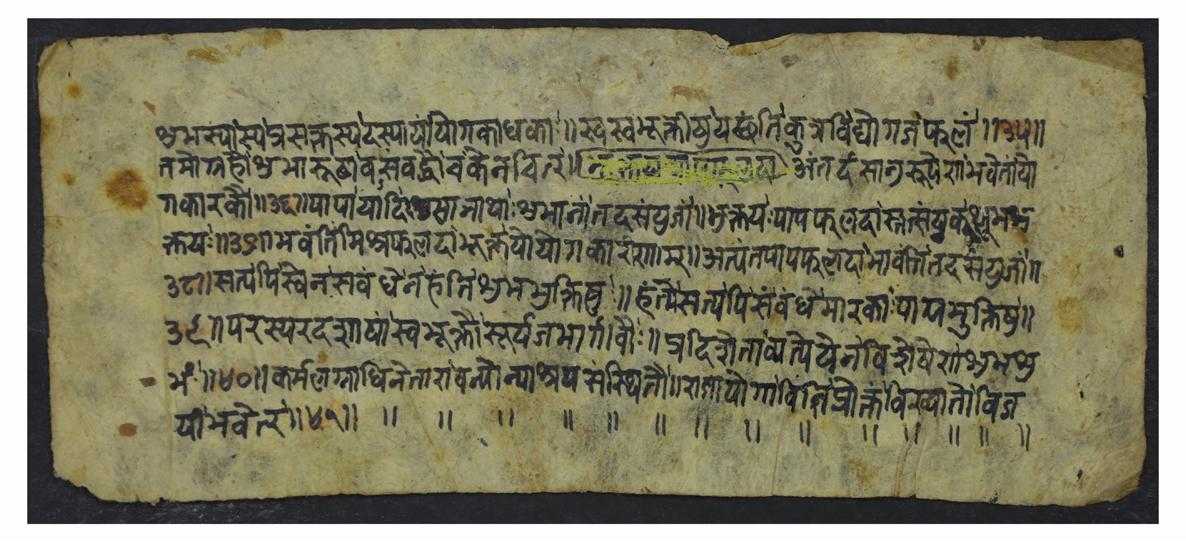 शुभस्यास्य प्रसक्तस्य दस्यायां योगकाधकाः॥ स्व स्व भुक्तौ प्रयच्छंति कुत्र विद्योगजं फलं॥३५॥
तमोग्रहौ शुभारूढाव सवद्धौ च केनचित्॥ अंतर्दसानुरूपेण भवेतां यो
गकारकौ॥३६॥ पापा यदि सानाथाः शुभानां तदसंयुजां॥ भुक्तयः पापफलदा स्तत्संयुक् शुभभु
क्तयः॥३७॥ भवंति मिश्रफलदा भुक्तयो योगकारणाम्॥ अत्यंतपापफलदा भवंति तदसंयुजां॥
३८॥ सत्यपि स्वेन सवंधे न हंति शुभभुक्तिषु॥ हंत्ये सत्यपि संवंधे मारकः पापभुक्तिषु॥
३९॥ परस्परदशायां स्वभुक्तौ सूर्यजभार्गवौ॥ प्रदिशेतां शुभाशु
भं॥४०॥ कर्मलग्नाधिनेतारावन्योन्याश्रय संस्थितौ॥ राजयोगाविति प्रोक्तं विख्यातो विज
यी भवेत्॥४१॥ ॥ ॥ ॥ ॥ ॥ ॥ ॥ ॥ ॥ ॥ ॥ ॥ ॥ ॥